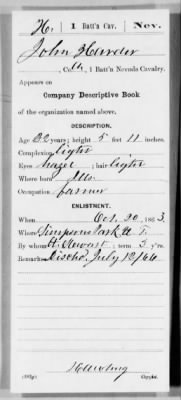 H. | 1 Batt'n Cav. | Nev.
John Harder
, Co. , 1 Batt'n Nevada Cavalry.
Appears on
Company Descriptive Book
of the organization named above.
DESCRIPTION.
Age 22 years; height 5 feet 11 inches.
Complexion Light
Eyes hazel ; hair light
Where born
Occupation farmer
ENLISTMENT.
When Oct. 20, 1863.
Where Simpsons Park U. T.
By whom Stewart ; term 3 y'rs.
Remarks Dischd. July 12/64
Copyist.